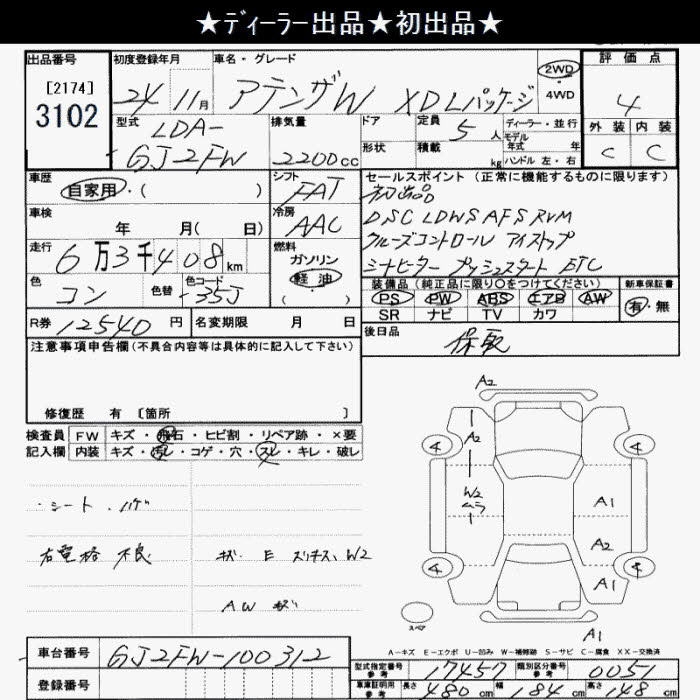 ★ディーラー出品★初出品★
出品番号 初度登録年月 車名・グレード 2WD ・ 4WD 評価点
[2174]
3102
24 11月 アテンザW XDLパッケージ 4
型式 排気量 ドア 定員 ディーラー・並行 外装 内装
LDA-
GJ2FW 2200cc 5人 モデル年式 年式 C C
形状 積載 kg ハンドル 左・右
車歴 シフト セールスポイント (正常に機能するものに限ります)
自家用・( ) FAT 初出品
車検 冷房 DSC LDWS AFS RVM
年 月( 日) AAC クルーズコントロール アイストップ
走行 燃料 シートヒーター プッシュスタート ETC
6万3千408km ガソリン 軽油 ( )
色 色替 色コード
コン 35J
装備品 (純正品に限り○をつけてください) 新車保証書
PS PW ABS エアB AW 有・無
SR ナビ TV カワ
R券 12540円 名変期限 月 日
後日品
保取
注意事項申告欄 (不具合内容等は具体的に記入して下さい)
修復歴 有 [箇所 ]
検査員 FW キズ・飛石・ヒビ割・リペア跡・×要
記入欄 内装 キズ・汚レ・コゲ・穴・スレ・キレ・破レ
・シート・ハゲ
右電格 不良 キズ・E スリキズ、W2
AW キズ
A2
A2
4 4
W2
ムラ
A1
A2
4 4
A1
スペア
A1
A-キズ E-エクボ U-凹み W-補修跡 S-サビ C-腐食 XX-交換済
車台番号 GJ2FW-100312
登録番号
型式指定番号 参考 17457 類別区分番号 参考 0051
車庫証明用 参考 長さ 480cm 幅 184cm 高さ 148cm